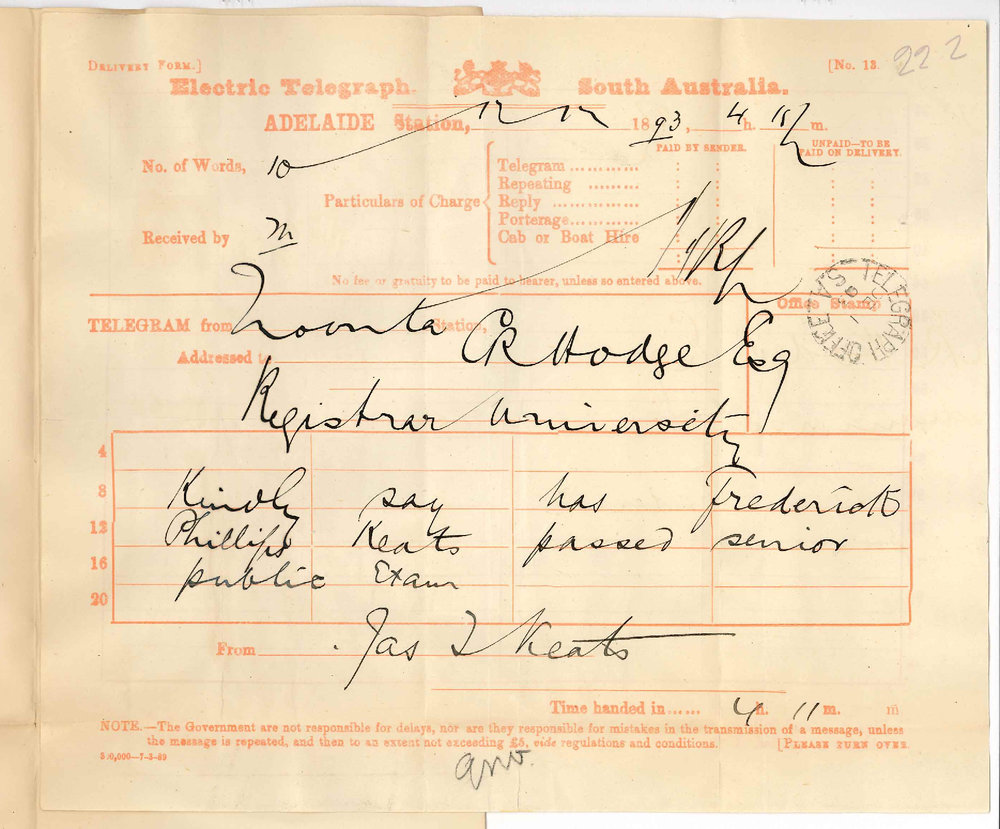 222
DELIVERY FORM.] [No. 13.
Electric Telegraph. South Australia.
ADELAIDE Station, 12 12 1893, 4 h. m.
PAID BY SENDER. UNPAID—TO BE PAID ON DELIVERY.
No. of Words, 10
Particulars of Charge
Telegram
Repeating
Reply
Porterage
Cab or Boat Hire
Received by M
No fee or gratuity to be paid to bearer, unless so entered above.
Office Stamp
TELEGRAPH OFFICE
TELEGRAM from Moonta Station,
Addressed to CR Hodge Esq
Registrar University
4
8 Kindly say has Frederick
12 Phillips Keats passed senior
16 public Exam
20
From Jas I Keats
Time handed in...... 4 h. 11 m. m
NOTE.—The Government are not responsible for delays, nor are they responsible for mistakes in the transmission of a message, unless
the message is repeated, and then to an extent not exceeding £5, vide regulations and conditions. [PLEASE TURN OVER.